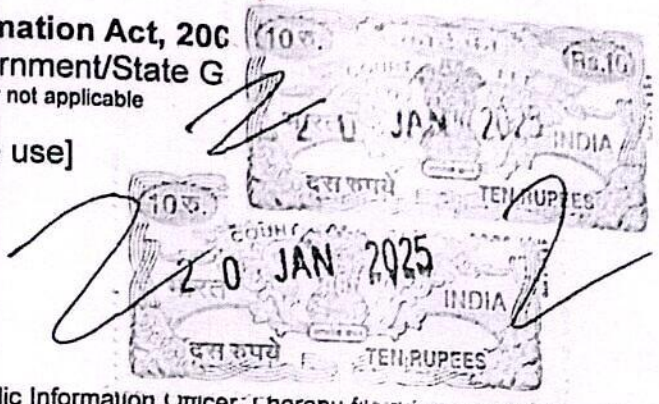 mation Act, 200
10 रु.
Rs.10
rnment/State G
not applicable
20 JAN 2025
INDIA
use]
दस रुपये
TEN RUPEES
10 रु.
COURT
20 JAN 2025
INDIA
दस रुपये
TEN RUPEES
lic Information Officer